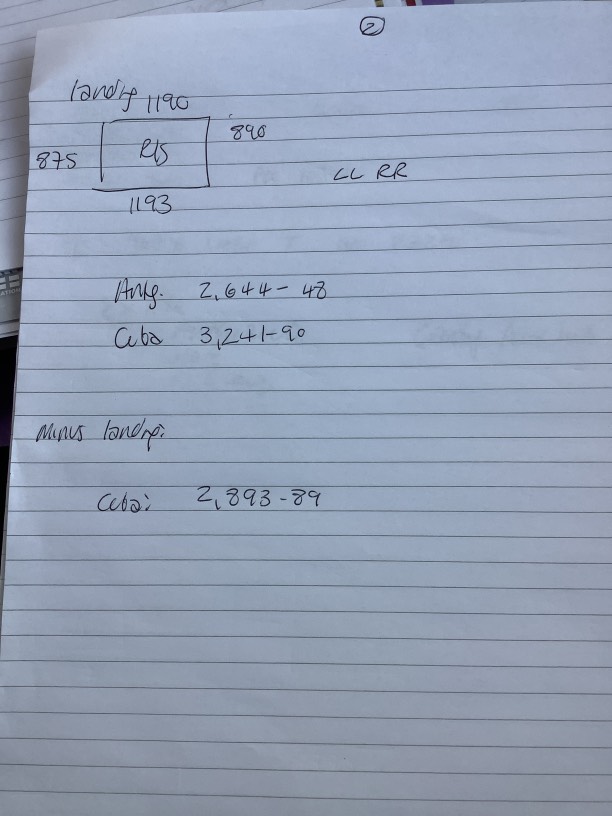 2
landing 1190
890
875 R/S
CC RR
1193
2,644-48
Cuba 3,241-90
Minus landing:
Cuba: 2,893-89